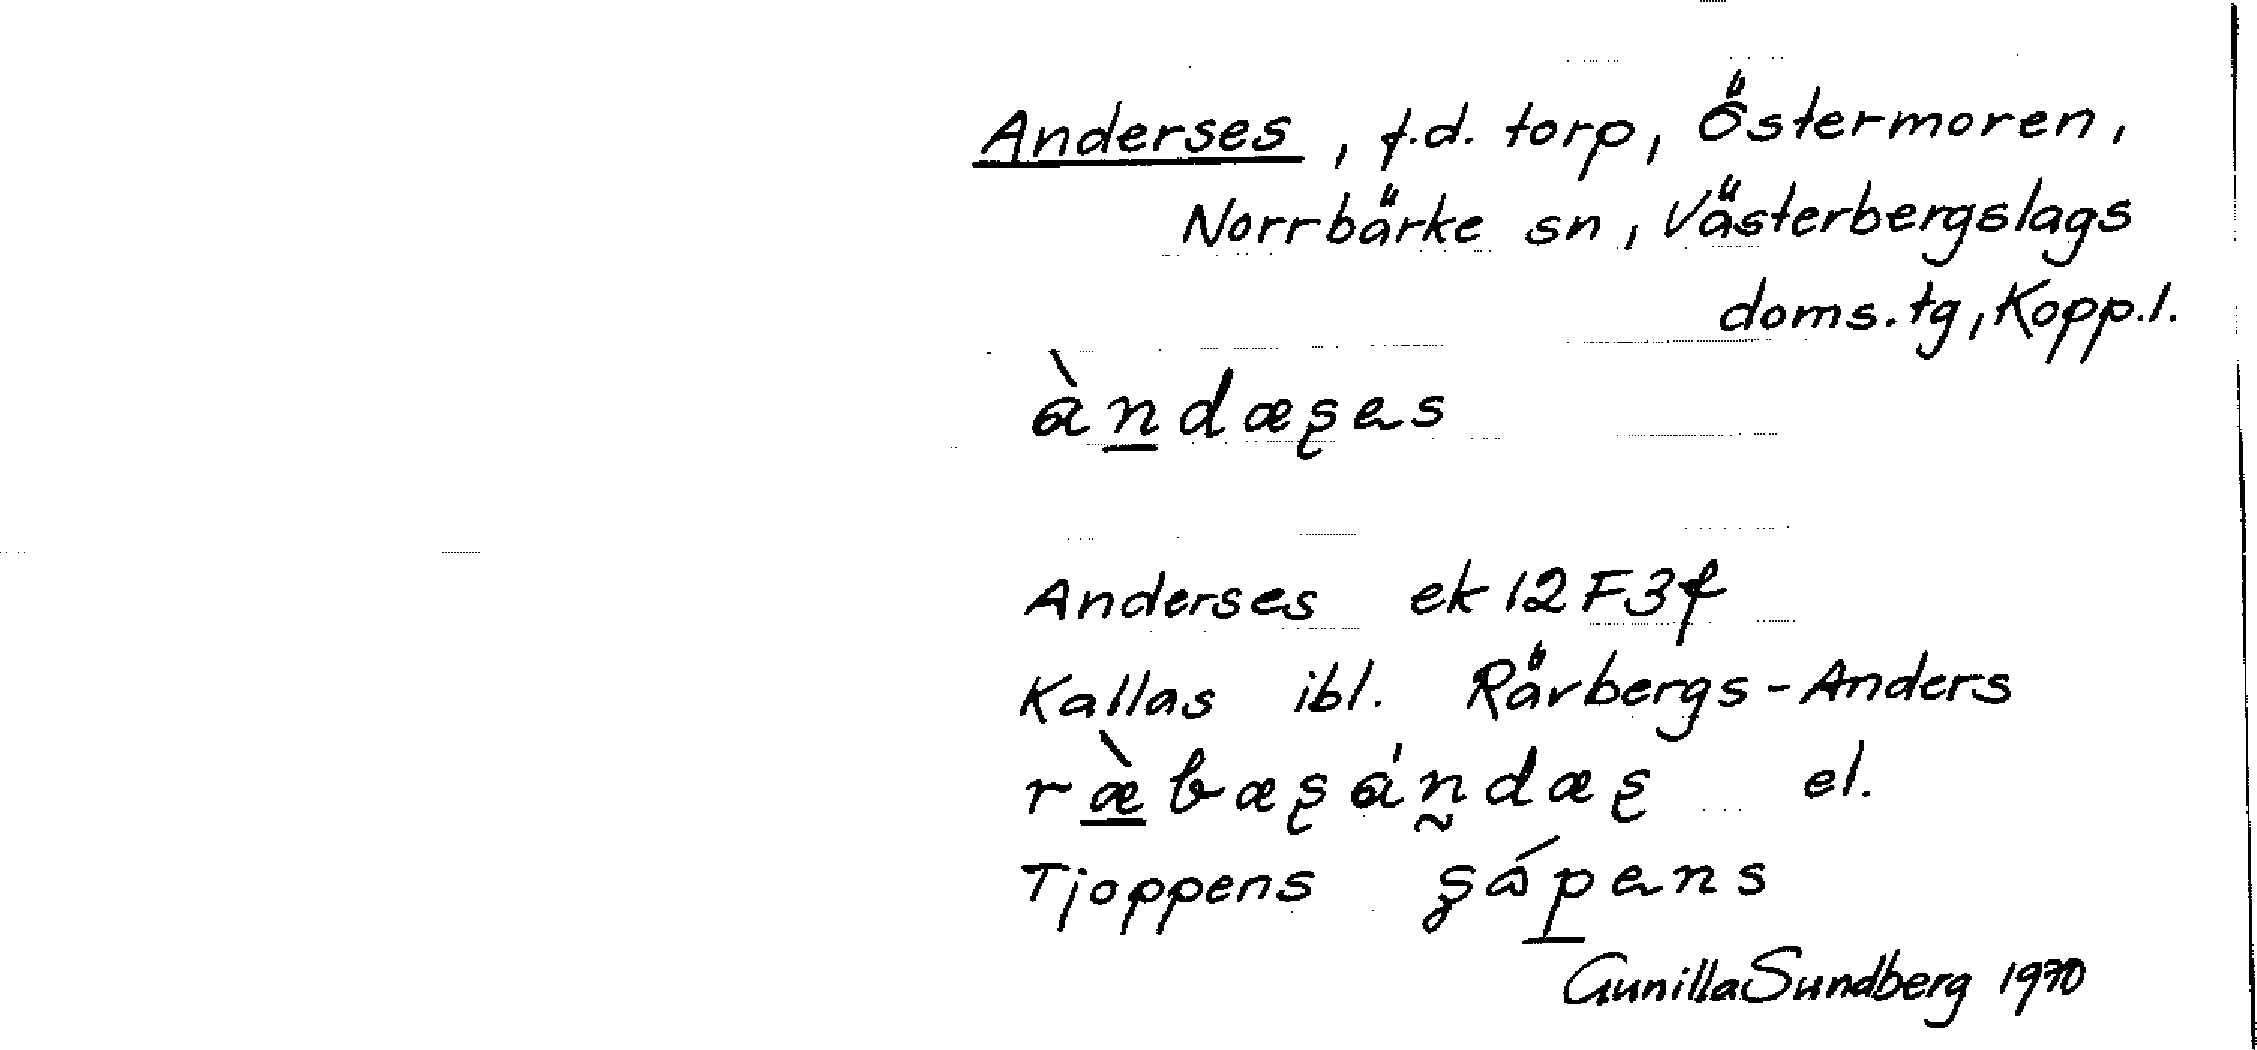 Anderses, f.d. torp, Östermoren,
Norrbärke sn, Västerbergslags
doms.tg, Kopp.l.
àndæșes
Anderses ek 12F3f
Kallas ibl. Rävbergs-Anders
ræ̀bæșándæș el.
Tjoppens șápens
Gunilla Sundberg 1970